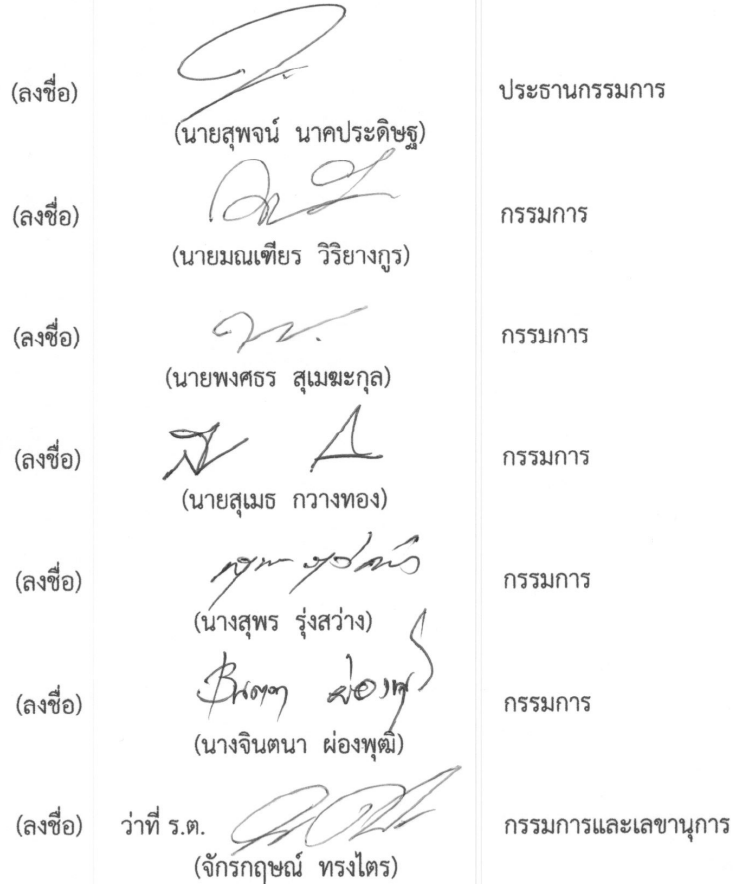 (ลงชื่อ) ประธานกรรมการ
(นายสุพจน์ นาคประดิษฐ)
(ลงชื่อ) กรรมการ
(นายมณเฑียร วิริยางกูร)
(ลงชื่อ) กรรมการ
(นายพงศธร สุเมฆะกุล)
(ลงชื่อ) กรรมการ
(นายสุเมธ กวางทอง)
(ลงชื่อ) กรรมการ
(นางสุพร รุ่งสว่าง)
(ลงชื่อ) กรรมการ
(นางจินตนา ผ่องพุฒิ)
(ลงชื่อ) ว่าที่ ร.ต. กรรมการและเลขานุการ
(จักรกฤษณ์ ทรงไตร)